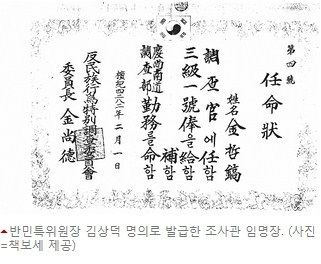 第四號
任命狀
姓名 金哲鎬
調査官에任함
三級一號俸을給함
補함
慶尙南道
調査部 勤務를命함
檀紀四二八二年二月一日
反民族行爲特別調査委員會
委員長 金尙德
▲반민특위원장 김상덕 명의로 발급한 조사관 임명장. (사진
=책보세 제공)